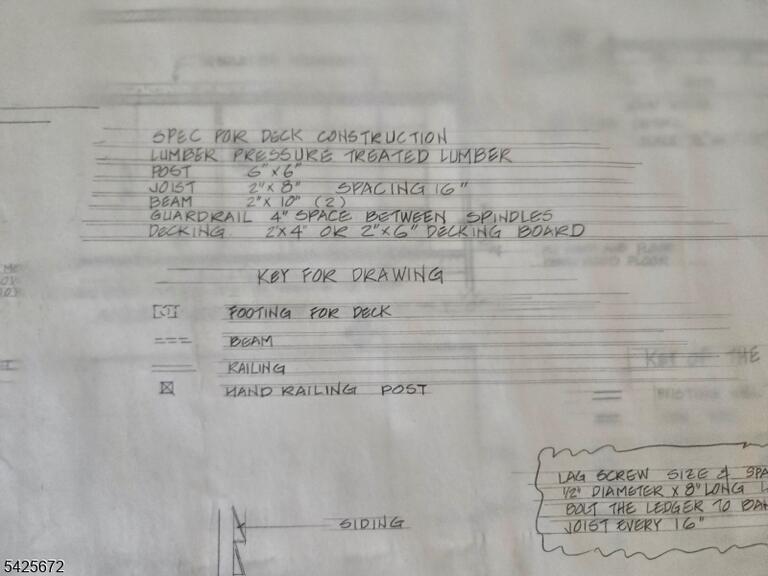 SPEC FOR DECK CONSTRUCTION
LUMBER PRESSURE TREATED LUMBER
POST 6"X6"
JOIST 2"X8" SPACING 16"
BEAM 2"X10" (2)
GUARDRAIL 4" SPACE BETWEEN SPINDLES
DECKING 2"X4" OR 2"X6" DECKING BOARD
KEY FOR DRAWING
FOOTING FOR DECK
BEAM
RAILING
HAND RAILING POST
KEY OF THE
LAG SCREW SIZE & SPA
1/2" DIAMETER X 8" LONG L
BOLT THE LEDGER TO BAN
JOIST EVERY 16"
SIDING
5425672